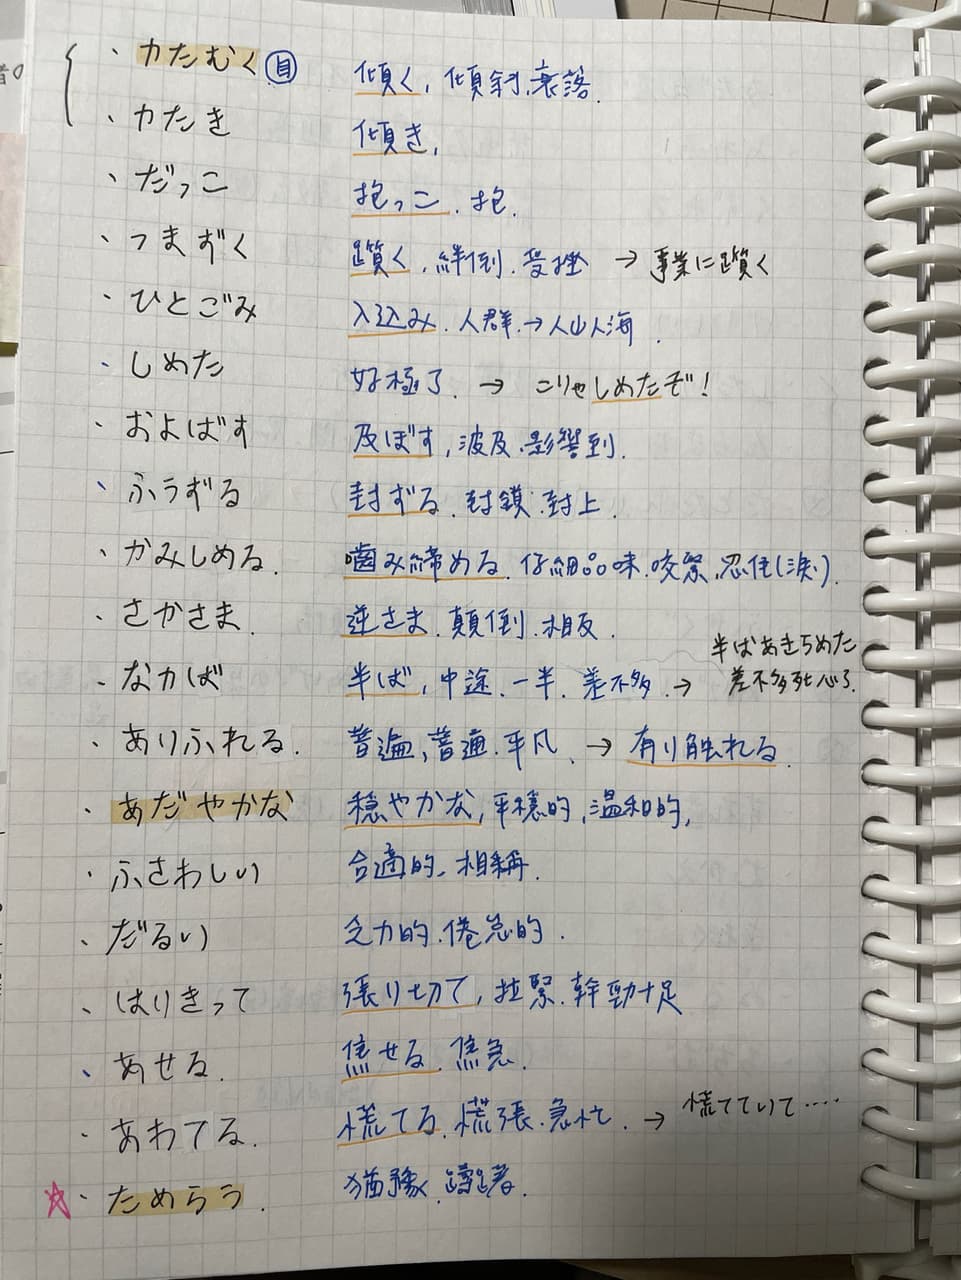 ・かたむく 自 傾く, 傾斜, 衰落.
・かたき 傾き,
・だっこ 抱っこ、抱.
・つまずく 躓く, 絆倒、受挫 → 事業に躓く
・ひとごみ 人込み、人群 → 人山人海.
・しめた 好極了 → こりゃしめたぞ!
・およばす 及ぼす, 波及、影響到.
・ふうずる 封ずる、封鎖、封上.
・かみしめる. 噛み締める、仔細品味、咬緊、忍住(淚).
・さかさま. 逆さま、顛倒、相反.
・なかば 半ば, 中途、一半、差不多 → 半ばあきらめた
差不多死心了.
・ありふれる. 普遍、普通、平凡 → 有り触れる.
・あだやかな 穏やかな, 平穩的, 温和的,
・ふさわしい 合適的、相稱.
・だるい 乏力的、倦怠的.
・はりきって 張り切て, 拉緊、幹勁十足
・あせる. 焦せる、焦急.
・あわてる. 慌てる、慌張、急忙. → 慌てていて····
☆・ためらう. 猶豫、躊躇.